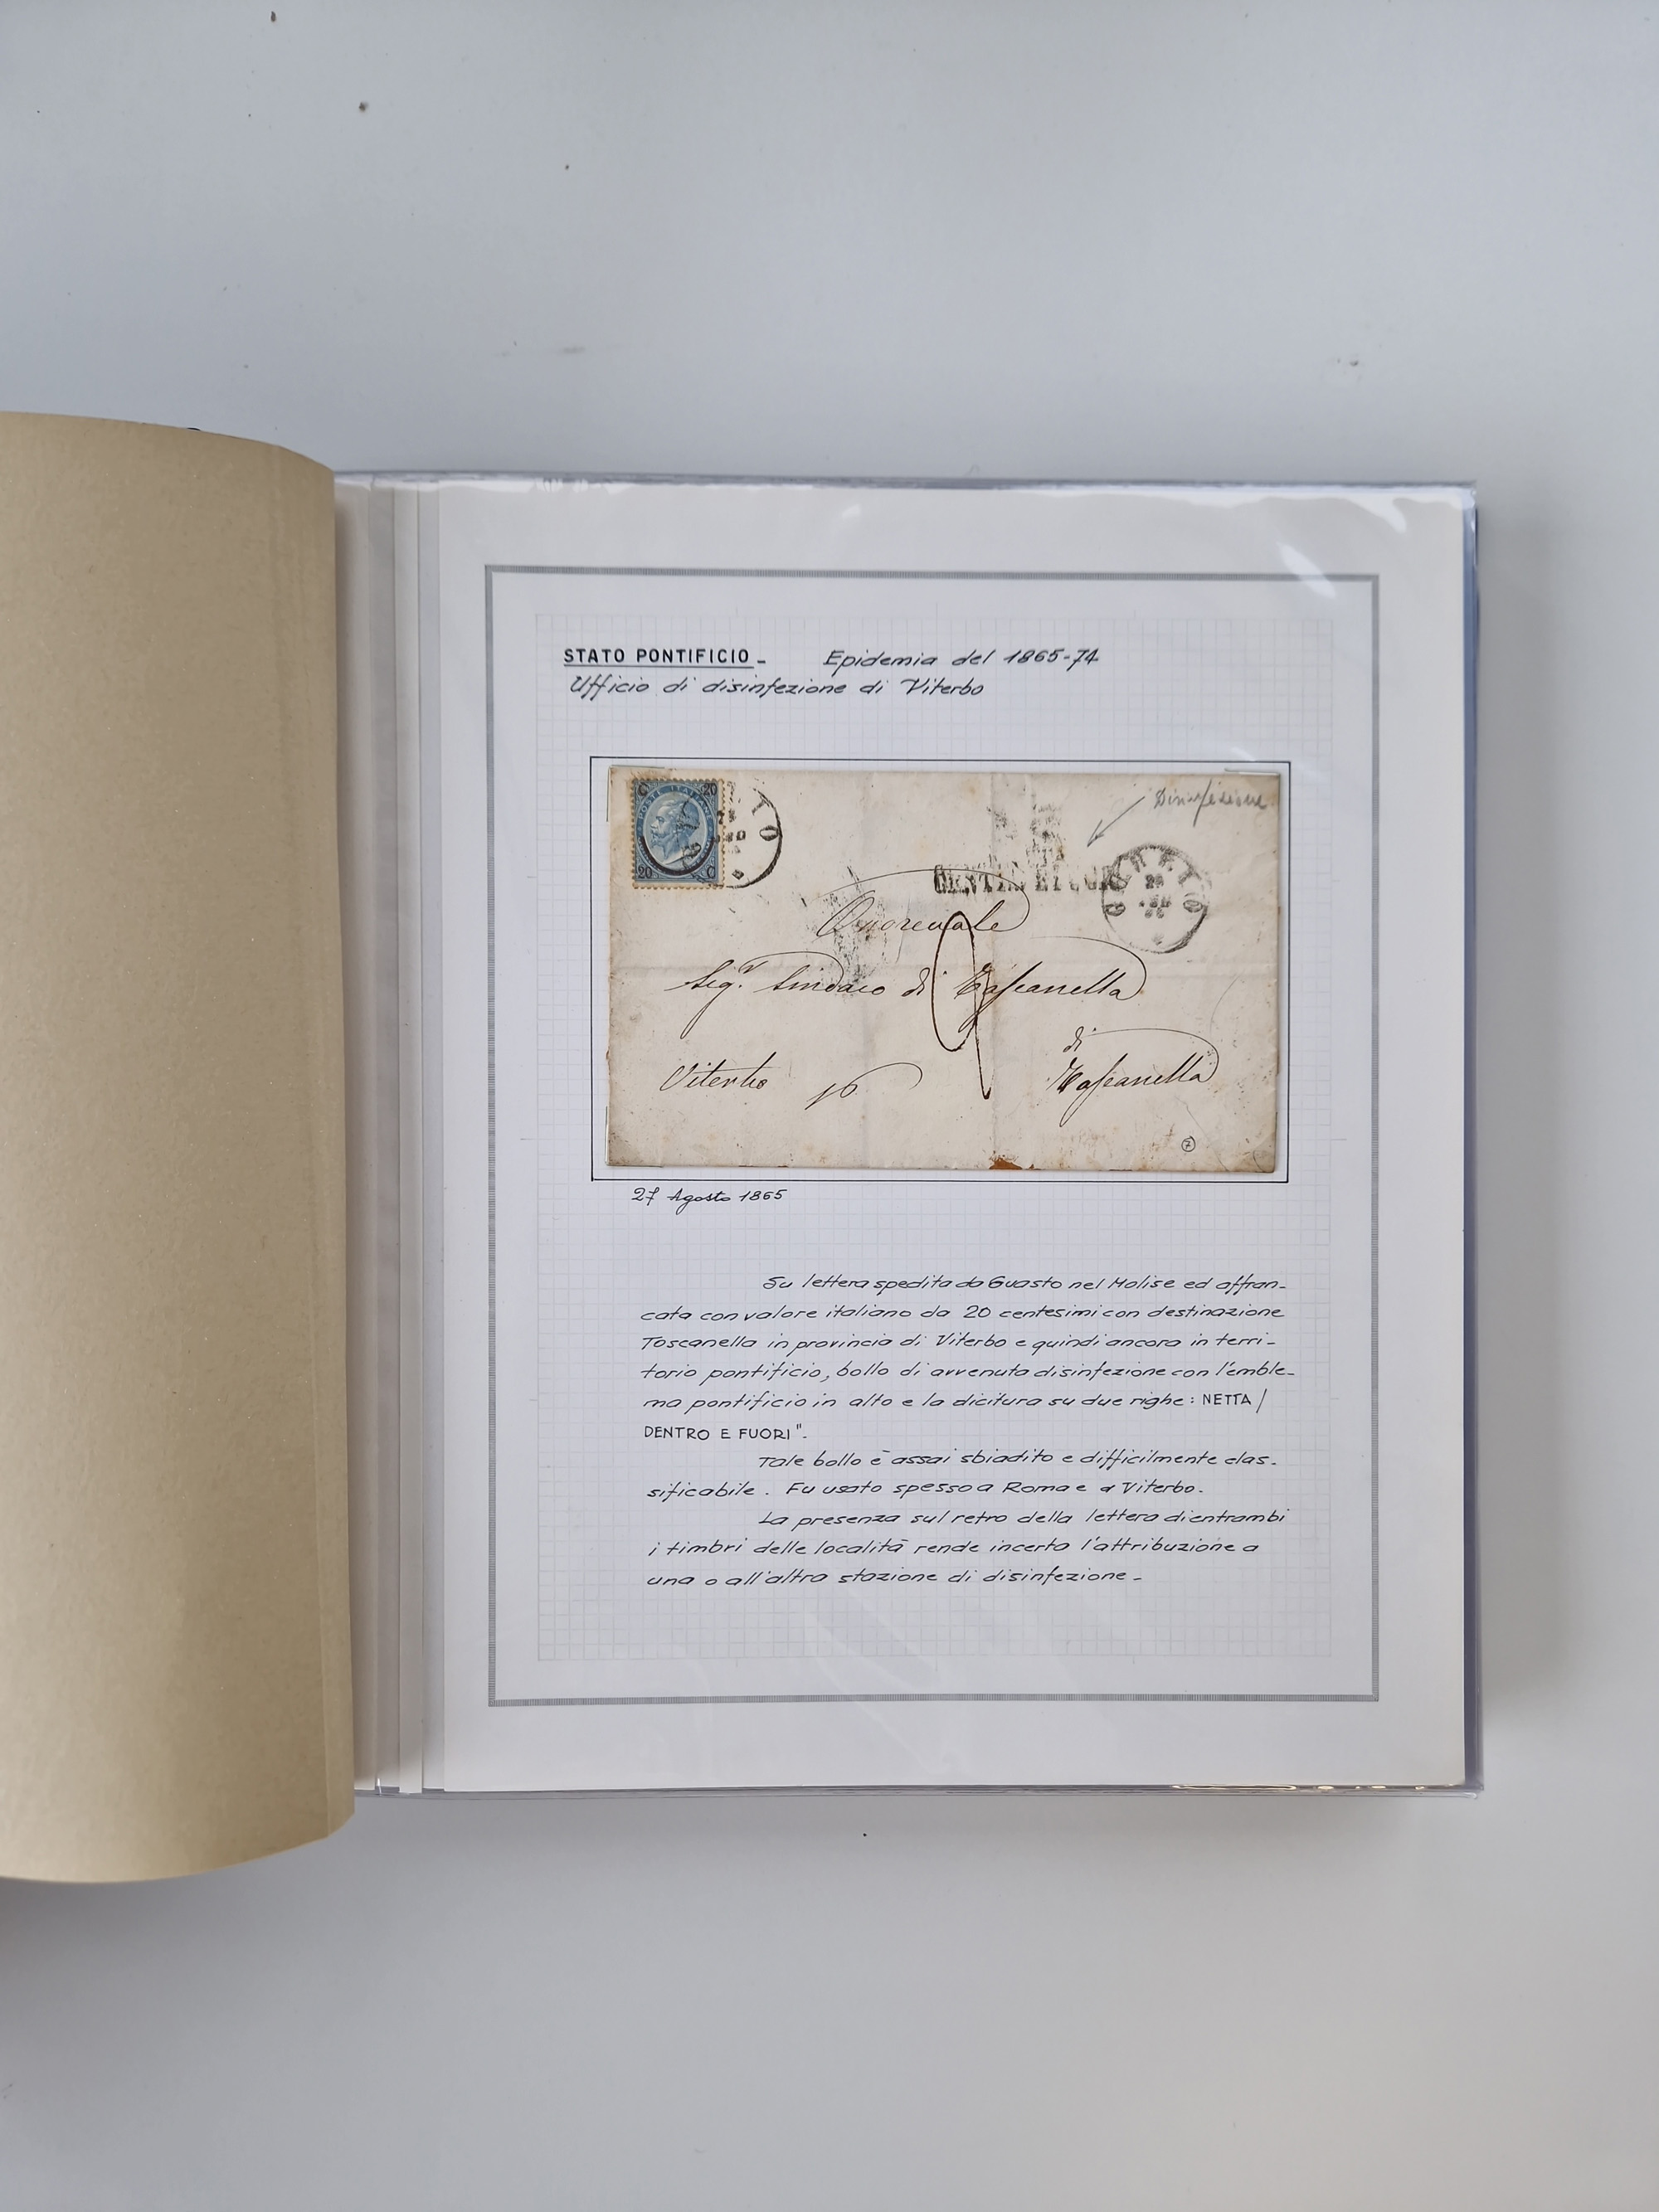 STATO PONTIFICIO - Epidemia del 1865-74
Ufficio di disinfezione di Viterbo
C 20
POSTE ITALIANE
20 C
Disinfezione
Onorevole
Sigr. Sindaco di Toscanella
di
Viterbo Toscanella
7
27 Agosto 1865
Su lettera spedita da Guasto nel Molise ed affran-
cata con valore italiano da 20 centesimi con destinazione
Toscanella in provincia di Viterbo e quindi ancora in terri-
torio pontificio, bollo di avvenuta disinfezione con l'emble-
ma pontificio in alto e la dicitura su due righe: NETTA /
DENTRO E FUORI".
Tale bollo è assai sbiadito e difficilmente clas-
sificabile. Fu usato spesso a Roma e a Viterbo.
La presenza sul retro della lettera di entrambi
i timbri delle località rende incerta l'attribuzione a
una o all'altra stazione di disinfezione -